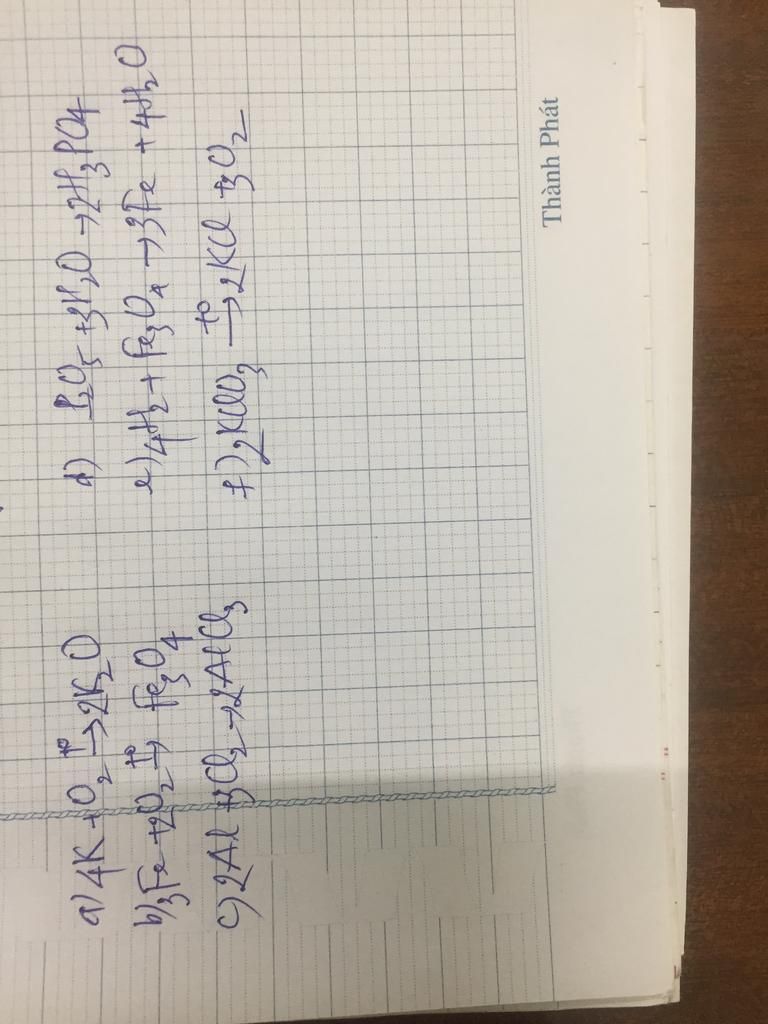 a) 4K + O2 t°→ 2K2O
b) 3Fe + 2O2 t°→ Fe3O4
c) 2Al + 3Cl2 → 2AlCl3
d) P2O5 + 3H2O → 2H3PO4
e) 4H2 + Fe3O4 → 3Fe + 4H2O
f) 2KClO3 t°→ 2KCl + 3O2
Thành Phát